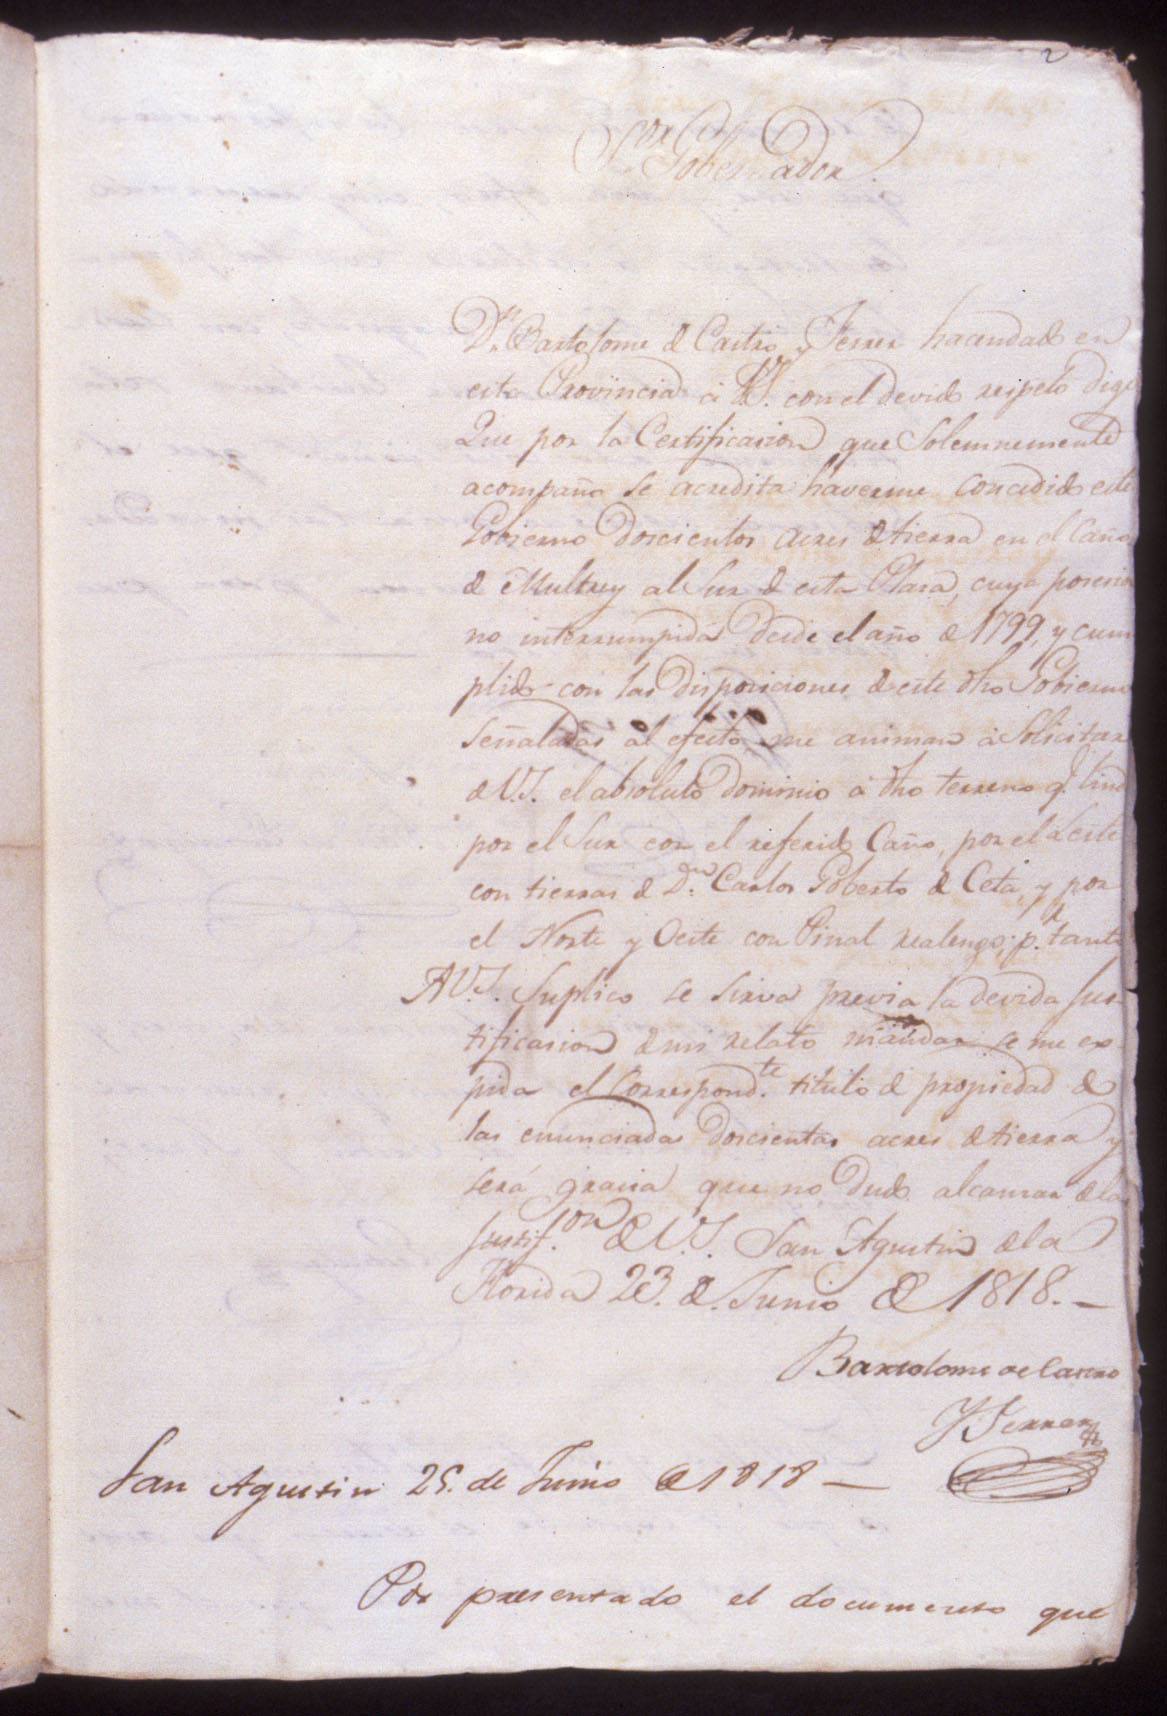 2
Sor
Gobernador.
Dn. Bartolome de Castro y Ferrer hacendado en
esta Provincia á V.S. con el devido respeto dige
Que por la Certificacion que Solemnemente
acompaño se acredita haverme concedido este
Gobierno Doscientos acres de tierra en el Caño
de Multrey al Sur de esta Plasa, cuya posesion
no interrumpida desde el año de 1799, y cum
plido con las Disposiciones de este dho Gobierno
señaladas al efecto, me animan á Solicitar
de V.S. el absoluto Dominio á dho terreno q.e linda
por el Sur con el referido Caño, por el Leste
con tierras de Dn. Carlos Goberto de Ceta, y por
el Norte y Oeste con Pinal realengo; p.r tanto
A V.S. Suplico se sirva previa la devida Jus-
tificasion de mi relato mandar se me ex
pida el Correspond.te titulo de propiedad de
las enunciadas Doscientas acres de tierra y
será gracia que no Dudo alcansar de la
Justif.on de V.S. San Agustin de la
Florida 23. de Junio de 1818. –
Bartolome de Castro
Y Ferrer
San Agustin 25. de Junio de 1818 –
Por presentado el documento que